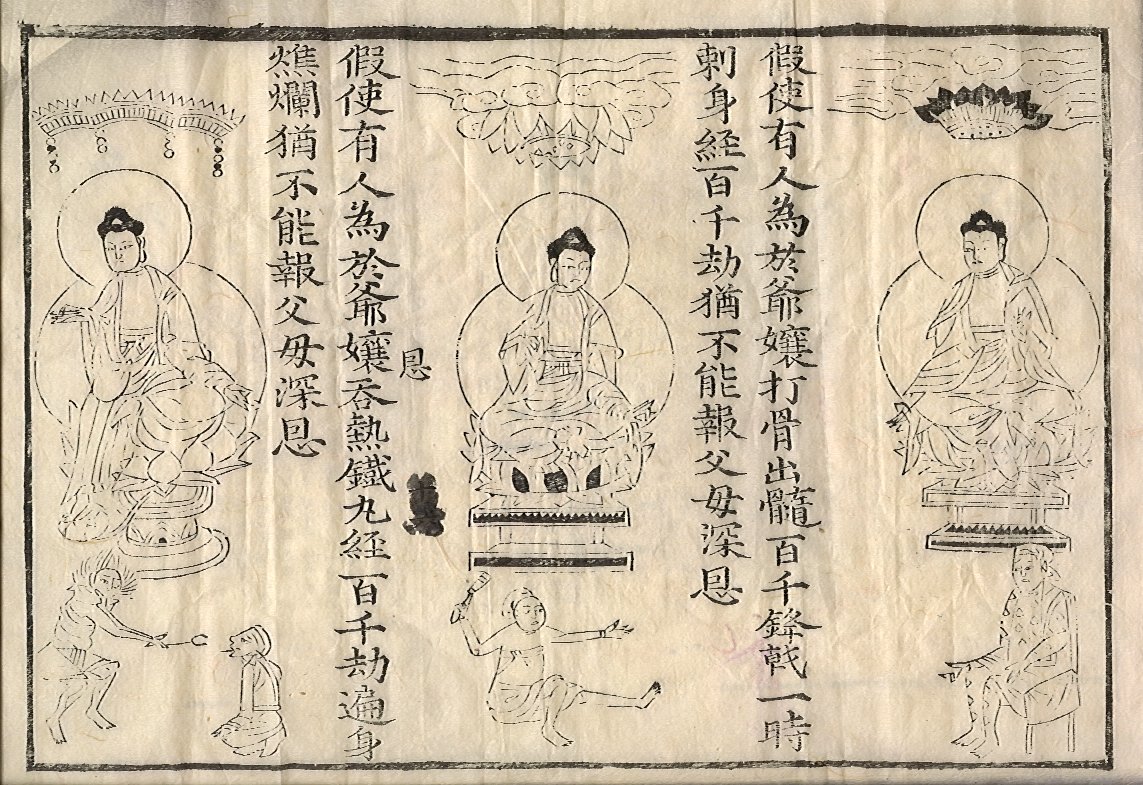 假使有人為於爺孃打骨出髓百千鋒戟一時
刺身経百千劫猶不能報父母深恩
恩
假使有人為於爺孃吞熱鐵丸経百千劫遍身
燋爛猶不能報父母深恩